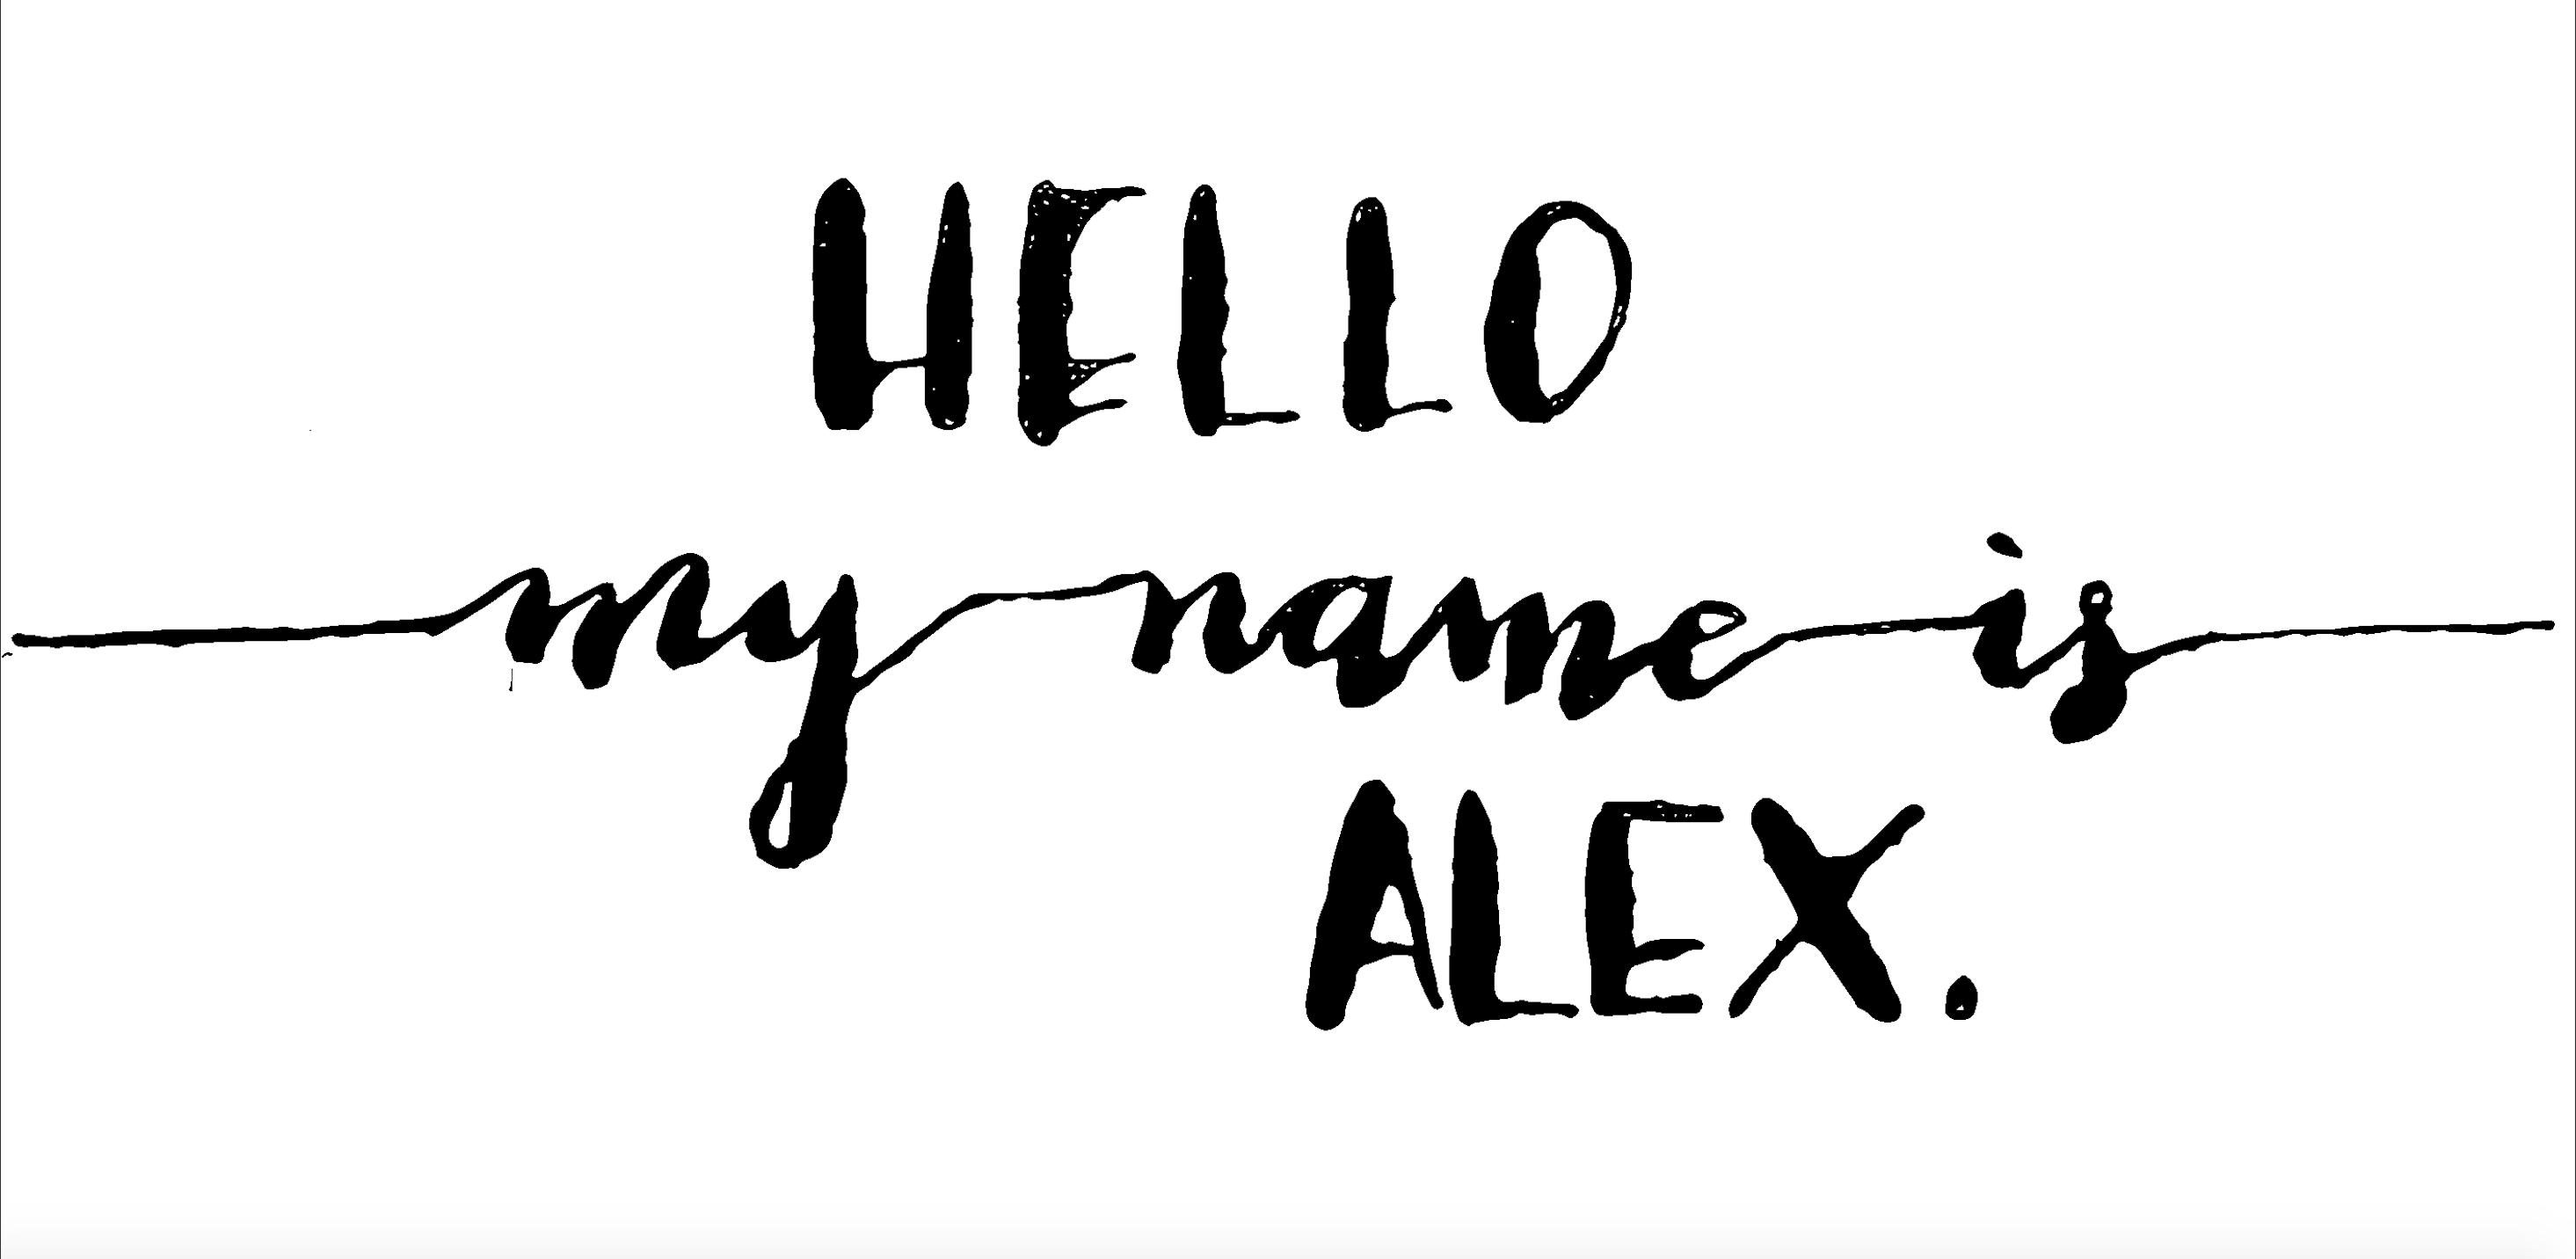 HELLO
my name is
ALEX.